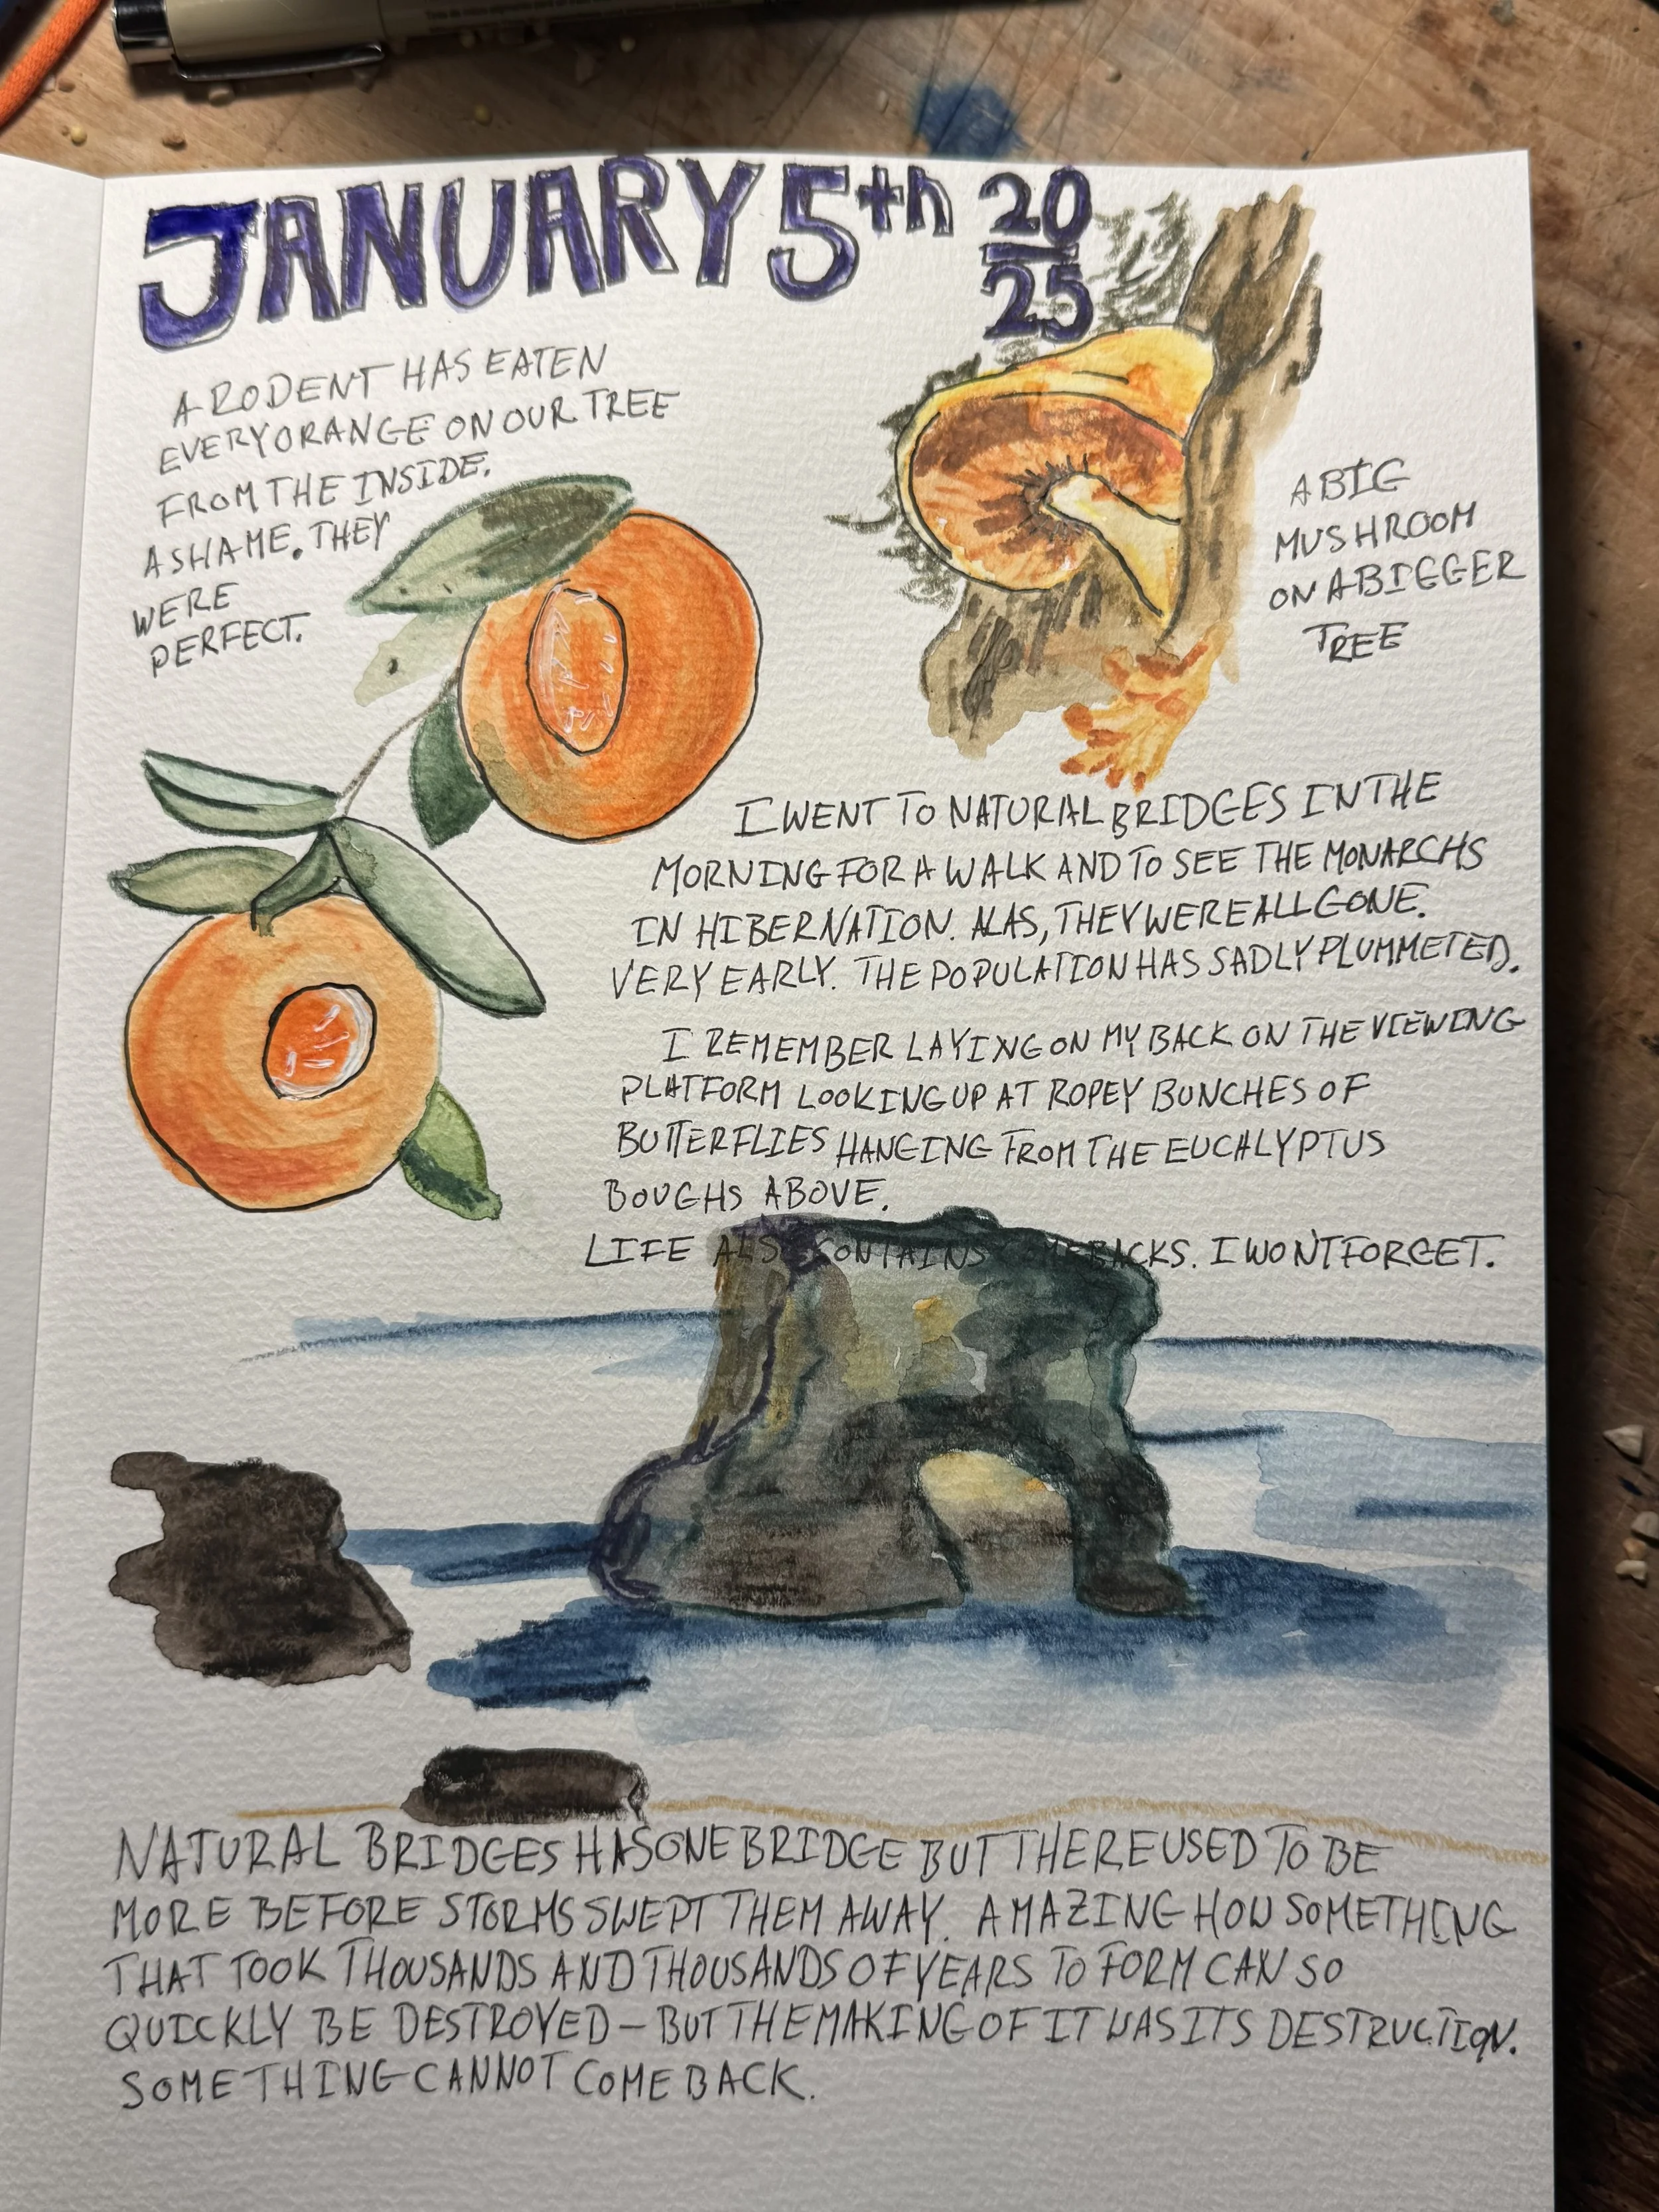 JANUARY 5th 20
25
A RODENT HAS EATEN
EVERY ORANGE ON OUR TREE
FROM THE INSIDE.
A SHAME. THEY
WERE
PERFECT.
A BIG
MUSHROOM
ON A BIGGER
TREE
I WENT TO NATURAL BRIDGES IN THE
MORNING FOR A WALK AND TO SEE THE MONARCHS
IN HIBERNATION. ALAS, THEY WERE ALL GONE.
VERY EARLY. THE POPULATION HAS SADLY PLUMMETED.
I REMEMBER LAYING ON MY BACK ON THE VIEWING
PLATFORM LOOKING UP AT ROPEY BUNCHES OF
BUTTERFLIES HANGING FROM THE EUCALYPTUS
BOUGHS ABOVE.
LIFE ALSO CONTAINS COMEBACKS. I WONT FORGET.
NATURAL BRIDGES HAS ONE BRIDGE BUT THERE USED TO BE
MORE BEFORE STORMS SWEPT THEM AWAY. AMAZING HOW SOMETHING
THAT TOOK THOUSANDS AND THOUSANDS OF YEARS TO FORM CAN SO
QUICKLY BE DESTROYED – BUT THE MAKING OF IT WAS ITS DESTRUCTION.
SOMETHING CANNOT COME BACK.